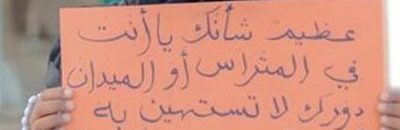 عظيم شأنك يا أنت
في المتراس أو الميدان
دورك لا تستهين به